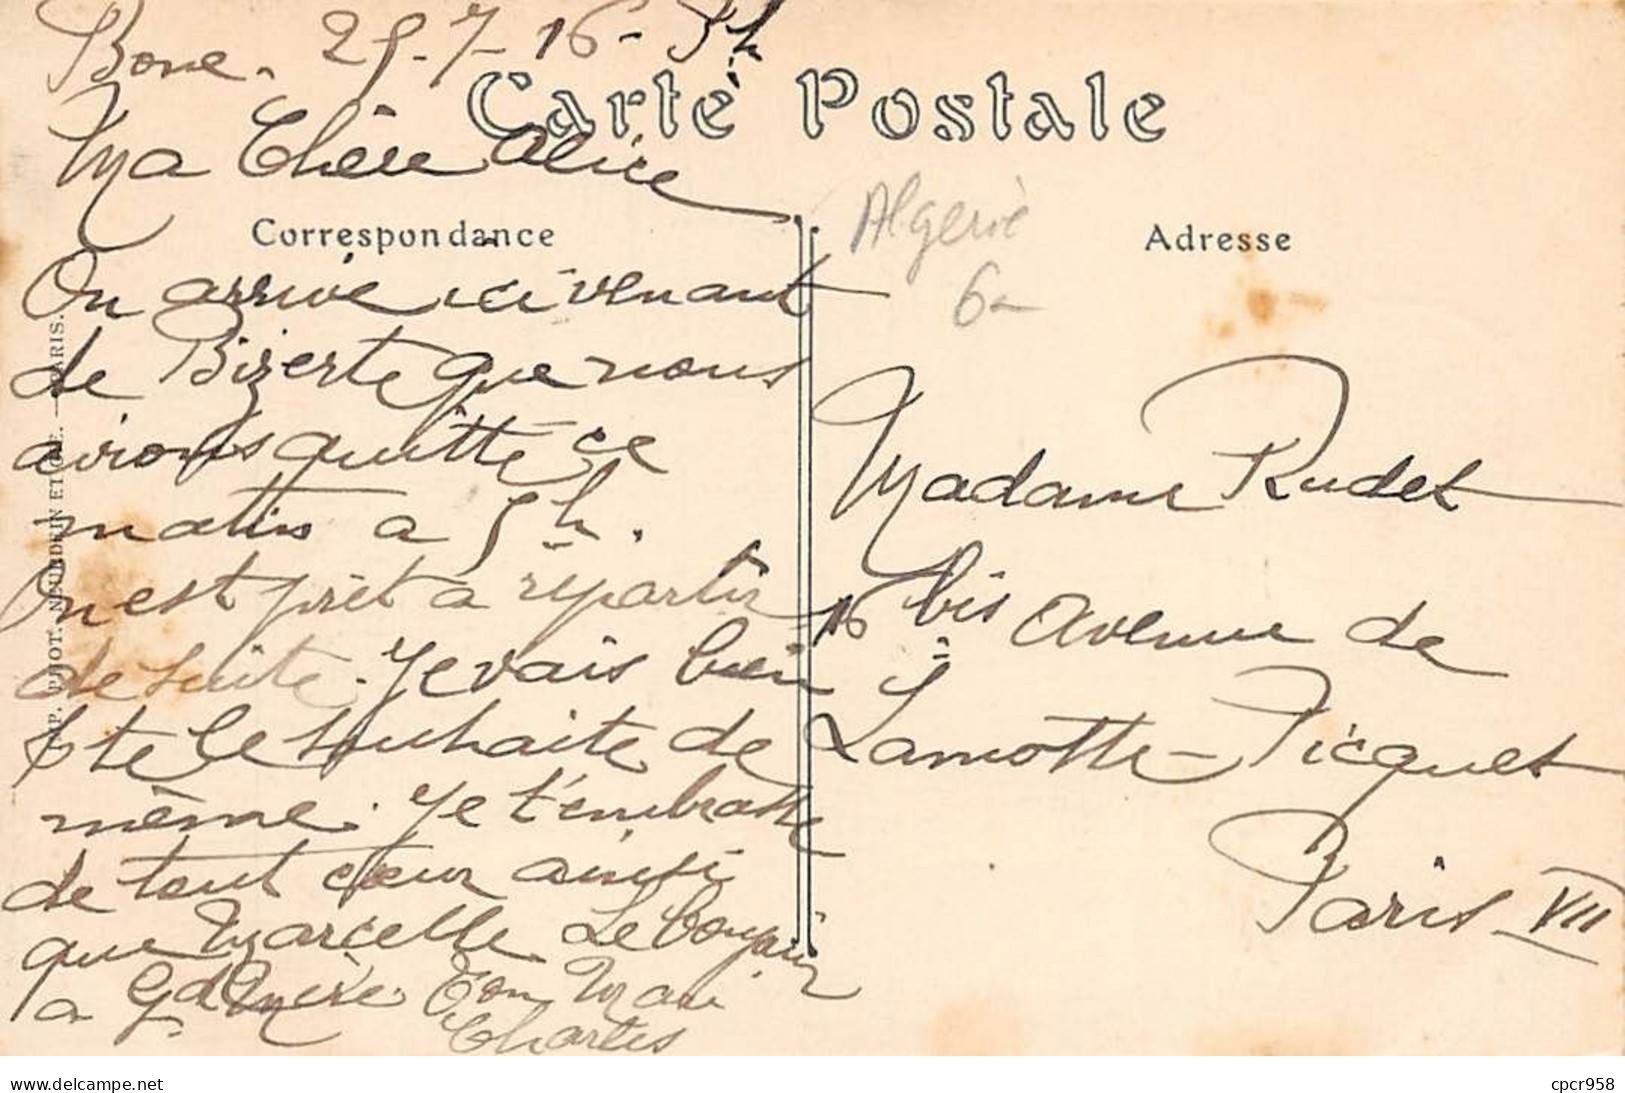 Bone. 25-7-16- 5h
Carte Postale
Ma Chère Alice
Correspondance
On arrive ici venant
de Bizerte que nous
avions quitté ce
matin a 5h.
On est prêt a repartir
de suite. Je vais bien
& te le souhaite de
même. Je t'embrasse
de tout cœur ainsi
que Marcelle. Le bonjour
a Gd Mère. Ton Mari
Charles
IMP. PHOT. NEURDEIN ET CIE. — PARIS.
Algerie
6-
Adresse
Madame Rudet
16 bis Avenue de
Lamotte-Picquet
Paris VII
www.delcampe.net
cpcr958